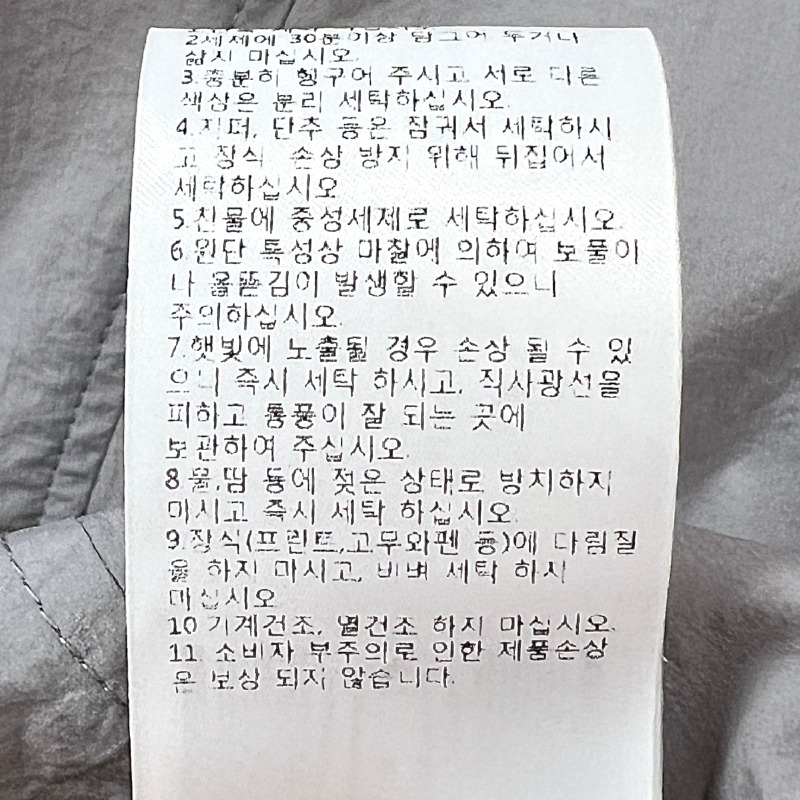 2.세제에 30분이상 담그어 두거나
삶지 마십시오.
3.충분히 헹구어 주시고 서로 다른
색상은 분리 세탁하십시오.
4.지퍼, 단추 등은 잠궈서 세탁하시
고 장식 손상 방지 위해 뒤집어서
세탁하십시오
5.찬물에 중성세제로 세탁하십시오.
6.원단 특성상 마찰에 의하여 보풀이
나 올뜯김이 발생할 수 있으니
주의하십시오.
7.햇빛에 노출될 경우 손상 될 수 있
으니 즉시 세탁 하시고, 직사광선을
피하고 통풍이 잘 되는 곳에
보관하여 주십시오.
8.물,땀 등에 젖은 상태로 방치하지
마시고 즉시 세탁 하십시오.
9.장식(프린트,고무와펜 등)에 다림질
을 하지 마시고, 비벼 세탁 하지
마십시오
10.기계건조, 열건조 하지 마십시오.
11. 소비자 부주의로 인한 제품손상
은 보상 되지 않습니다.